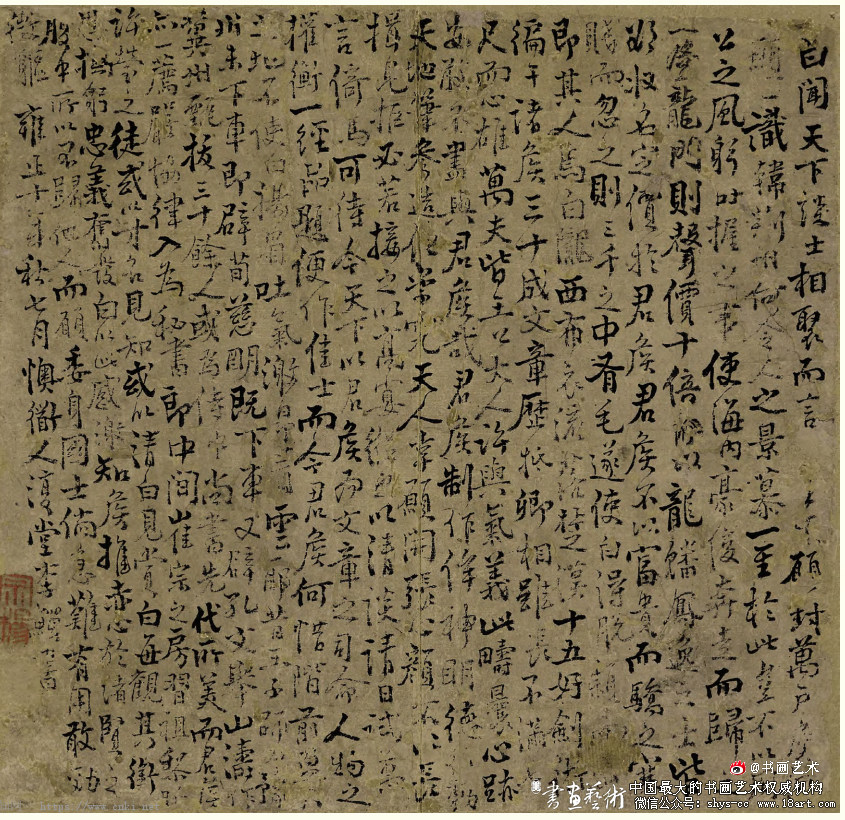 白聞天下談士相聚而言生不願封萬戶侯
願一識韓荊州何令人之景慕一至於此豈不以
公之風躬吐握之事使海內豪俊奔走而歸
一登龍門則聲價十倍所以龍蟠鳳逸之士皆
欲收名定價於君侯君侯不以富貴而驕之寒
賤而忽之則三千之中有毛遂使白得脫穎而
即其人焉白隴西布衣流落楚漢十五好劍術
徧干諸侯三十成文章歷抵卿相雖長不滿
尺而心雄萬夫皆王公大人許與氣義此疇曩心跡
安敢不盡與君侯哉君侯制作侔神明德動
天地筆參造化學究天人幸願開張心顏不以長
揖見拒必若接之以高宴縱之以清談請日試萬
言倚馬可待今天下以君侯為文章之司命人物之
權衡一經品題便作佳士而今君侯何惜階前盈尺
之地不使白揚眉吐氣激昂青雲耶昔王子師
州未下車即辟荀慈明既下車又辟孔文舉山濤作
冀州甄拔三十餘人或為侍中尚書先代所美而君侯
亦一薦嚴協律入為秘書郎中間崔宗之房習祖黎昕
許瑩之徒或以才名見知或以清白見賞白每觀其銜
恩撫躬忠義奮發白以此感激知侯推赤心於諸賢之
腹中所以不歸他人而願委身國士倘急難有用敢効
微軀 雍正十年秋七月懊衟人復堂李鱓書
@书画艺术
書畫藝術
中国最大的书画艺术权威机构
微信公众号：shys-cc www.18art.com